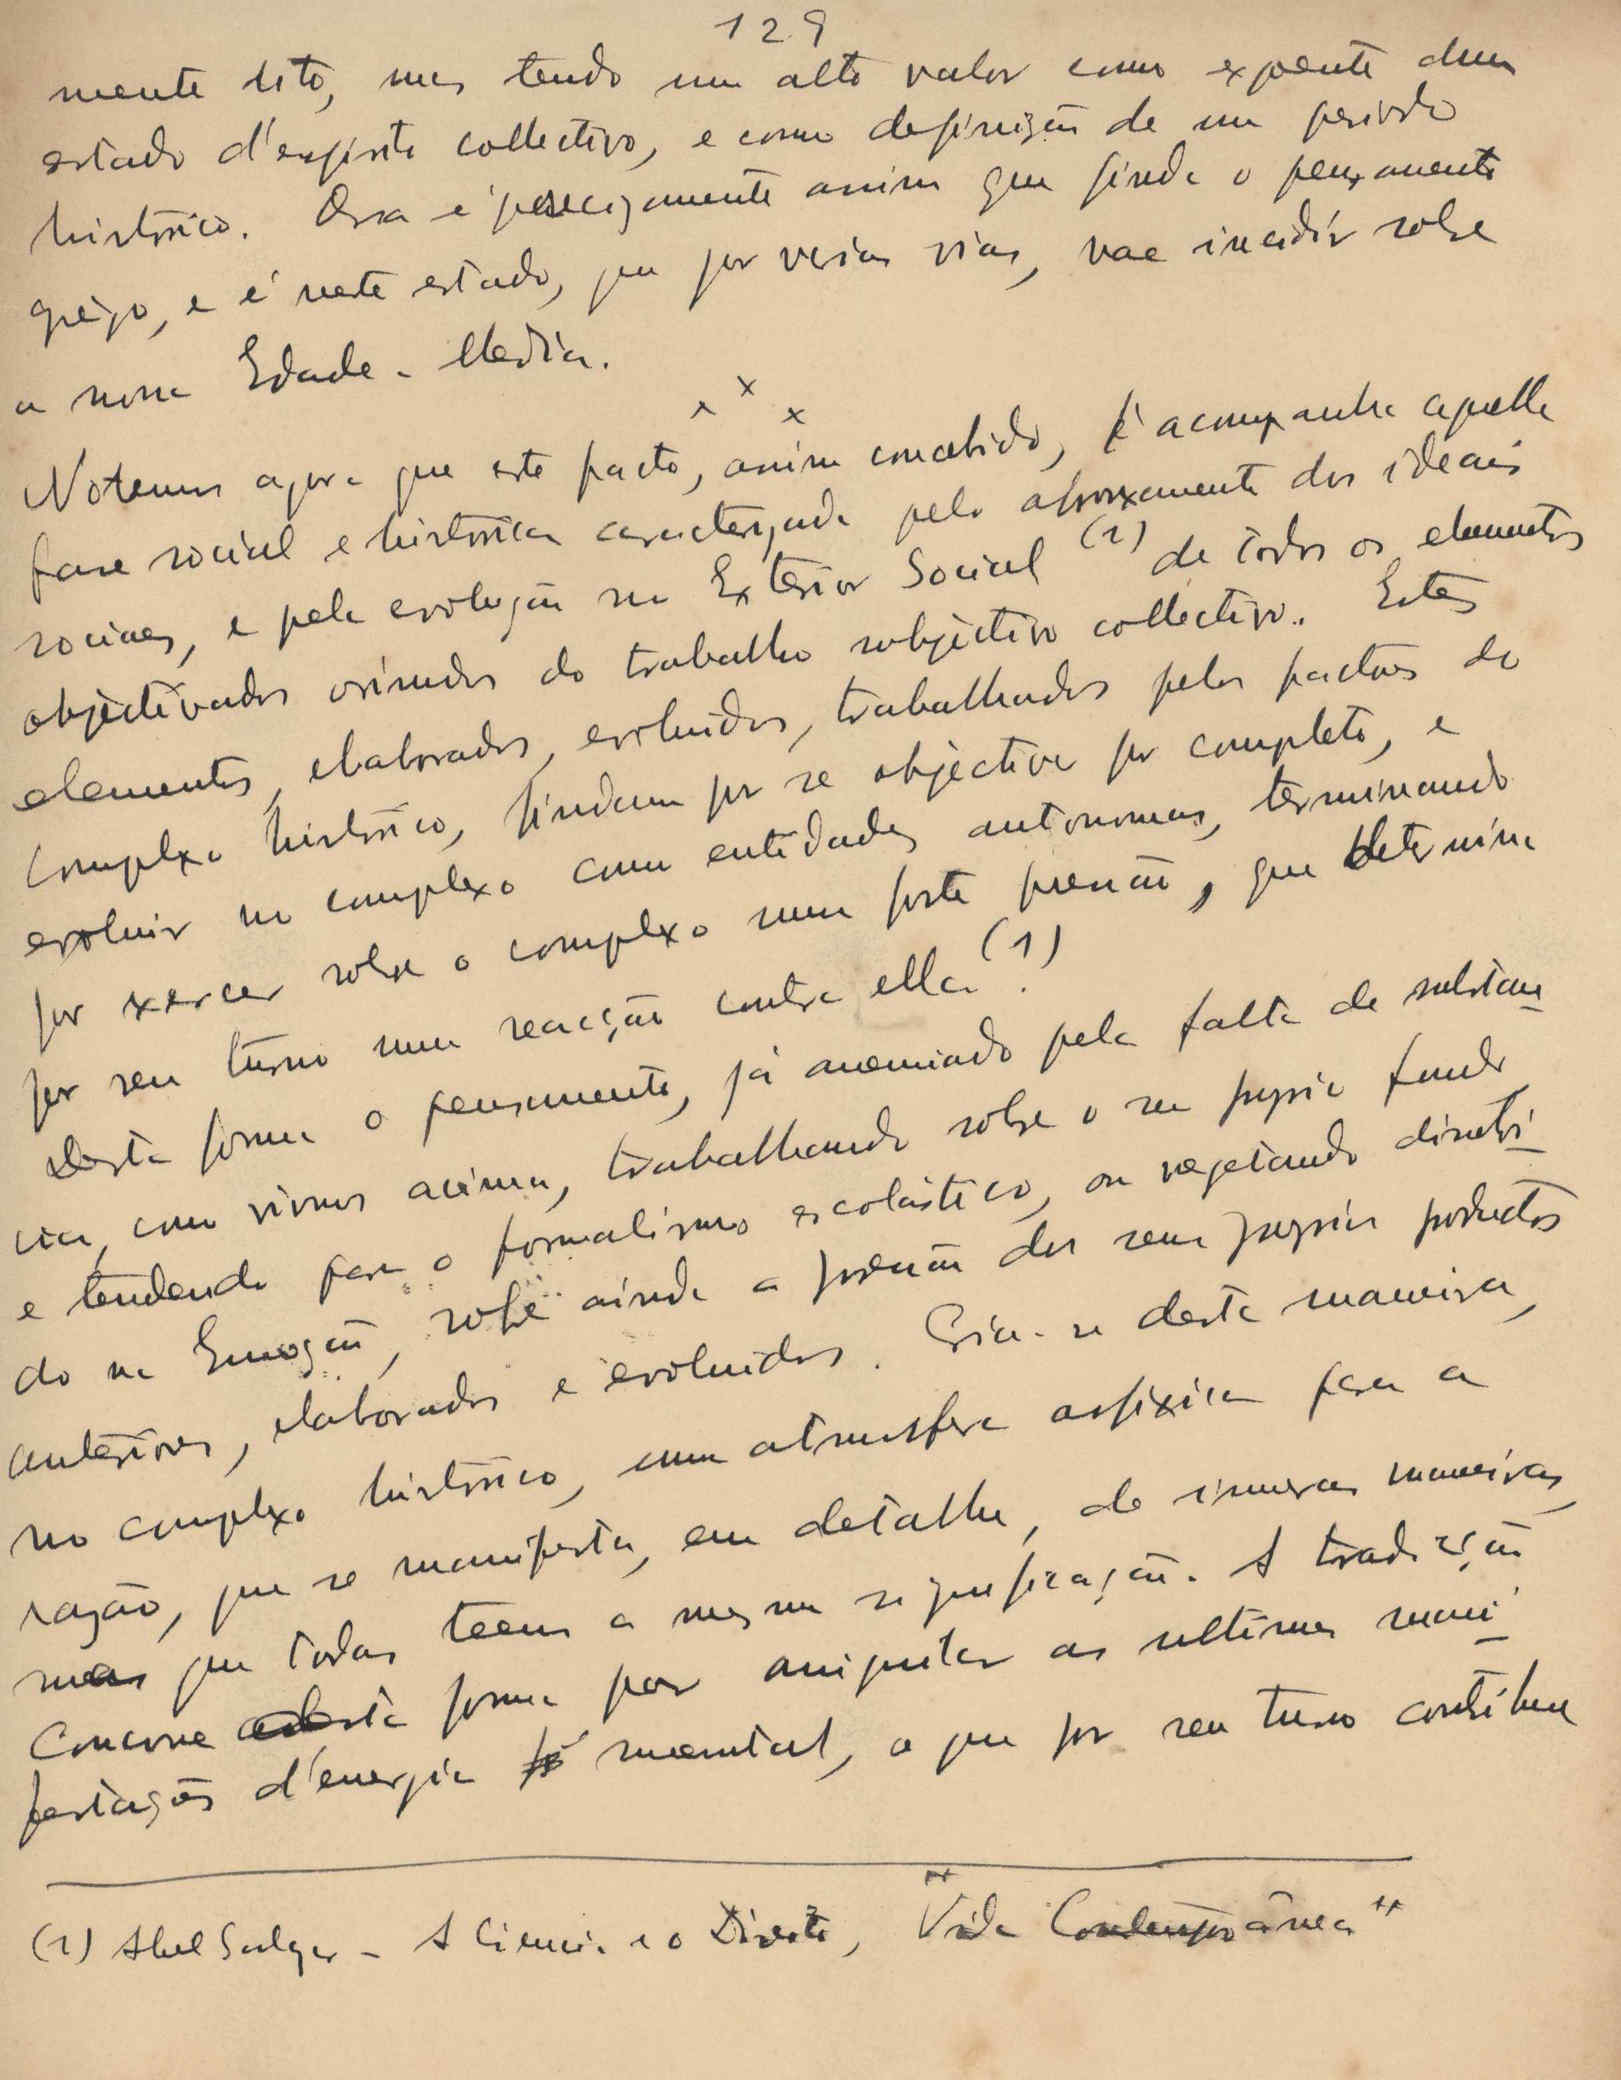 129
mente dito, mas tendo um alto valor como expoente dum
estado d'espirito collectivo, e como definição de um periodo
historico. Ora é precizamente assim que finda o pensamento
grego, e é neste estado, que por varias vias, vae incidir sobre
a nossa Edade-Media.
x x x
Notemos agora que este facto, assim concebido, acompanha aquella
fase social e historica caracterizada pelo afrouxamento dos ideais
sociaes, e pela evolução no Exterior Social (1) de todos os elementos
objectivados oriundos do trabalho subjectivo collectivo. Estes
elementos, elaborados, evoluidos, trabalhados pelos factores do
complexo historico, findam por se objectivar por completo, e
evoluir no complexo como entidades autonomas, terminando
por exercer sobre o complexo uma forte pressão, que determina
por seu turno uma reacção contra ella (1).
Desta forma o pensamento, já anemiado pela falta de substan-
cia, como vimos acima, trabalhando sobre o seu proprio fundo
e tendendo para o formalismo escolástico, ou vegetando diretri-
do na Emoção, sofre ainda a pressão dos seus proprios productos
anteriores, elaborados e evoluidos. Cria-se desta maneira,
no complexo historico, uma atmosfera asfixica para a
razão, que se manifesta, em detalhe, de inumeras maneiras,
mas que todas teem a mesma significação. A tradição
Concorre desta forma para aniquilar as ultimas mani-
festações d'energia mental, o que por seu turno contribue
(1) Abel Salazar - A Ciencia e o Direito, "Vida Contemporânea"